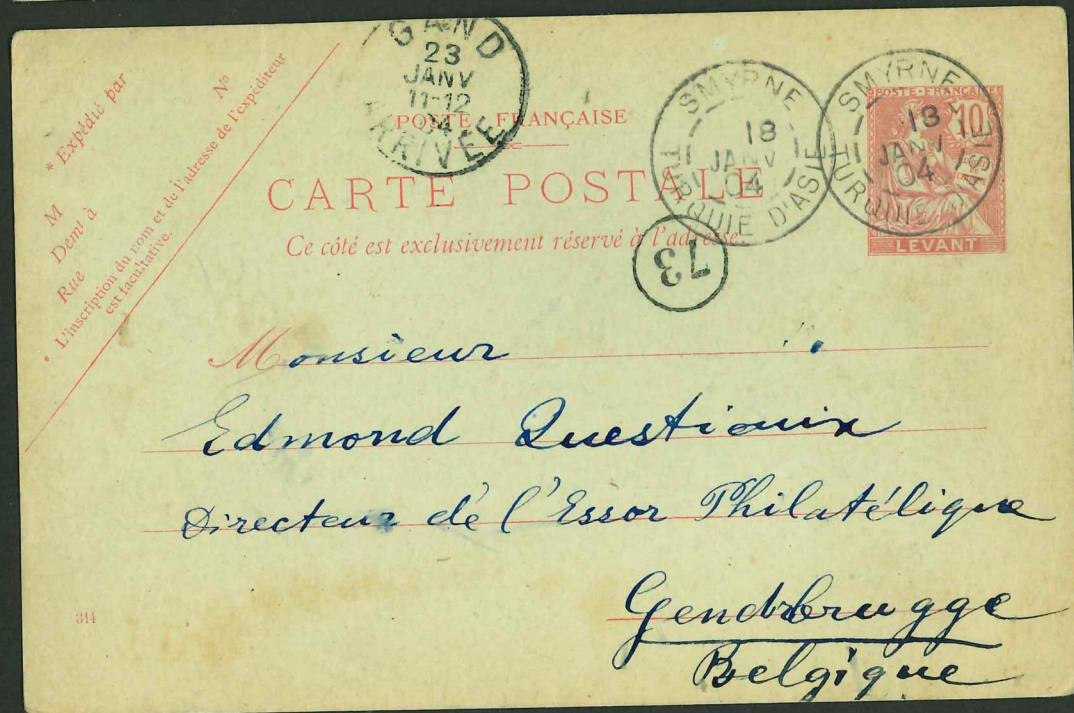 * Expédié par
M
Demt à
Rue
No
* L'inscription du nom et de l'adresse de l'expéditeur
est facultative.
GAND
23
JANV
11-12
04
ARRIVÉE
POSTE FRANÇAISE
CARTE POSTALE
Ce côté est exclusivement réservé à l'adresse.
SMYRNE
18
JANV
04
TURQUIE D'ASIE
SMYRNE
18
JANV
04
TURQUIE D'ASIE
POSTE FRANÇAISE
10
LEVANT
73
Monsieur
Edmond Questiaux
Directeur de l'Essor Philatélique
Gendbrugge
Belgique
314